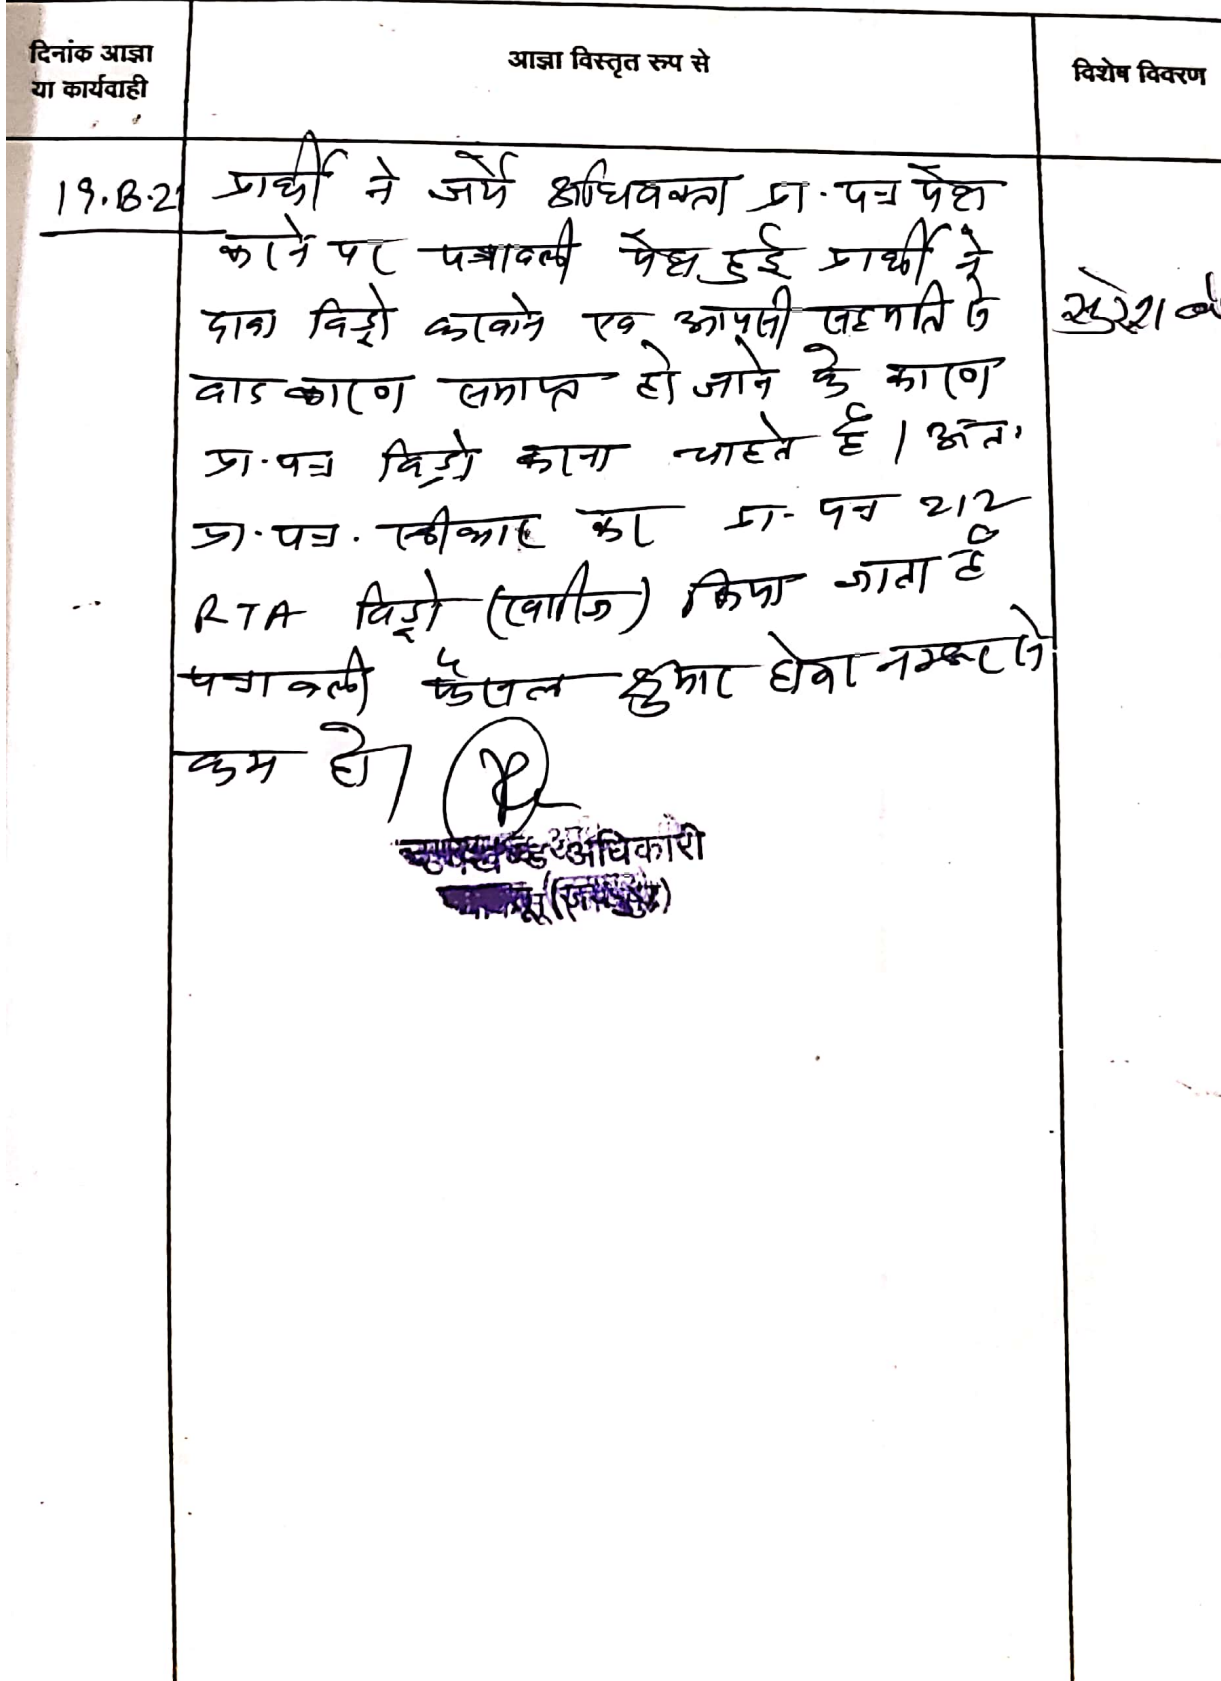 दिनांक आज्ञा
या कार्यवाही
आज्ञा विस्तृत रूप से
विशेष विवरण
19.8.21
प्रार्थी ने जर्ये अधिवक्ता प्रा.पत्र पेश
करने पर पत्रावली पेश हुई प्रार्थी ने
दावा विड्रो करवाने एव आपसी सहमति से
वाद कारण समाप्त हो जाने के कारण
प्रा.पत्र विड्रो करना चाहते है। अतः
प्रा.पत्र. स्वीकार कर प्रा- पत्र 212
RTA विड्रो (खारीज) किया जाता है
पत्रावली फैसल शुमार होकर नम्बर से
कम हो।
सुरेश
उपखण्ड अधिकारी
चाकसू (जयपुर)